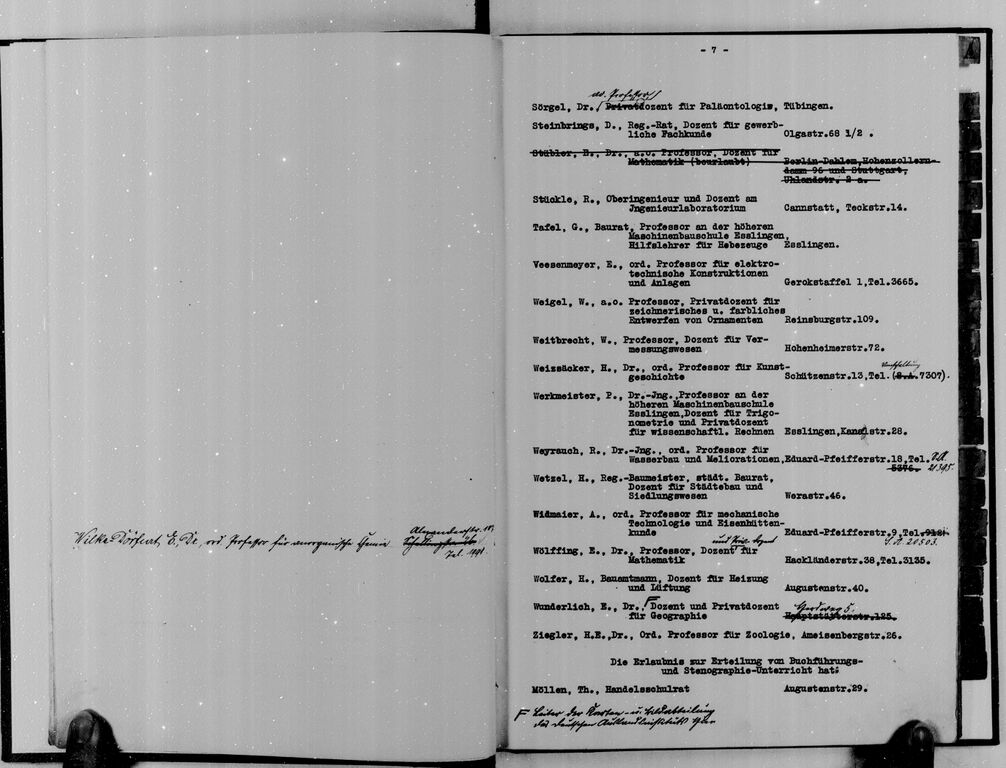 Wilke Dörfurt, E., Dr., ord. Professor für anorganische Chemie
Alexanderstr.
Tel.
- 7 -
ao. Professor
Sörgel, Dr., Privatdozent für Paläontologie, Tübingen.
Steinbrings, D., Reg.-Rat, Dozent für gewerb-
liche Fachkunde Olgastr.68 1/2 .
Stübler, E., Dr., a.o. Professor, Dozent für
Mathematik (beurlaubt) Berlin-Dahlem,Hohenzollern-
damm 96 und Stuttgart,
Uhlandstr. 2 a.
Stückle, R., Oberingenieur und Dozent am
Jngenieurlaboratorium Cannstatt, Teckstr.14.
Tafel, G., Baurat, Professor an der höheren
Maschinenbauschule Esslingen,
Hilfslehrer für Hebezeuge Esslingen.
Veesenmeyer, E., ord. Professor für elektro-
technische Konstruktionen
und Anlagen Gerokstaffel 1,Tel.3665.
Weigel, W., a.o. Professor, Privatdozent für
zeichnerisches u. farbliches
Entwerfen von Ornamenten Reinsburgstr.109.
Weitbrecht, W., Professor, Dozent für Ver-
messungswesen Hohenheimerstr.72.
Weizsäcker, H., Dr., ord. Professor für Kunst-
geschichte Schützenstr.13,Tel.(S.A.7307).
Werkmeister, P., Dr.-Jng.,Professor an der
höheren Maschinenbauschule
Esslingen,Dozent für Trigo-
nometrie und Privatdozent
für wissenschaftl. Rechnen Esslingen,Kanalstr.28.
Weyrauch, R., Dr.-Jng., ord. Professor für
Wasserbau und Meliorationen,Eduard-Pfeifferstr.18,Tel. S.A.
5376. 21395.
Wetzel, H., Reg.-Baumeister, städt. Baurat,
Dozent für Städtebau und
Siedlungswesen Werastr.46.
Widmaier, A., ord. Professor für mechanische
Technologie und Eisenhütten-
kunde Eduard-Pfeifferstr.9,Tel.912.
S.A. 20503.
und Priv. Dozent
Wölffing, E., Dr., Professor, Dozent für
Mathematik Hackländerstr.38,Tel.3135.
Wolfer, H., Bauamtmann, Dozent für Heizung
und Lüftung Augustenstr.40.
Wunderlich, E., Dr., F Dozent und Privatdozent
für Geographie Hauptstätterstr.125.
Ziegler, H.E.,Dr., Ord. Professor für Zoologie, Ameisenbergstr.26.
Die Erlaubnis zur Erteilung von Buchführungs-
und Stenographie-Unterricht hat:
Möllen, Th., Handelsschulrat Augustenstr.29.
F Leiter der Karten- u. Bildabteilung
des deutschen Auslandinstituts